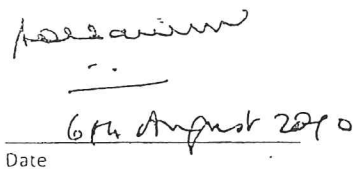 6th August 2010
Date